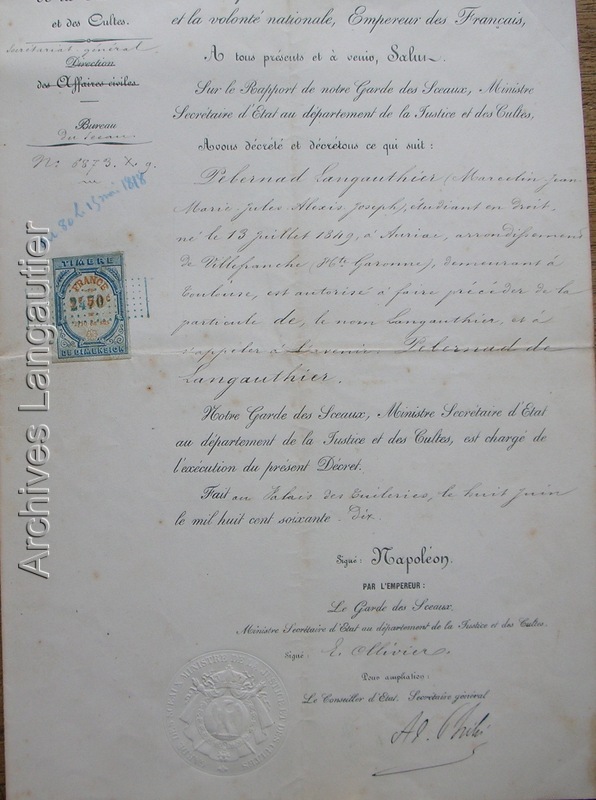 et des Cultes.
Secrétariat général
Direction
des Affaires civiles
Bureau
du Sceau
N° 6873. X. 9.
et la volonté nationale, Empereur des Français,
A tous présents et à venir, Salut.
Sur le Rapport de notre Garde des Sceaux, Ministre
Secrétaire d'Etat au département de la Justice et des Cultes,
Avons décrété et décrétons ce qui suit :
Pebernad Langauthier (Marcelin Jean
Marie Jules Alexis Joseph), étudiant en Droit,
né le 13 juillet 1849, à Auriac, arrondissement
de Villefranche (Hte Garonne), demeurant à
Toulouse, est autorisé à faire précéder de la
particule de, le nom Langauthier, et à
s'appeler à l'avenir, Pebernad de
Langauthier.
Notre Garde des Sceaux, Ministre Secrétaire d'Etat
au département de la Justice et des Cultes, est chargé de
l'exécution du présent Décret.
Fait au Palais des Tuileries, le huit juin
le mil huit cent soixante-dix.
Signé: Napoléon.
PAR L'EMPEREUR:
Le Garde des Sceaux,
Ministre Secrétaire d'Etat au département de la Justice et des Cultes.
Signé: E. Ollivier.
Pour ampliation:
Le Conseiller d'Etat, Secrétaire général
TIMBRE
FRANCE
DE DIMENSION
Archives Langautier